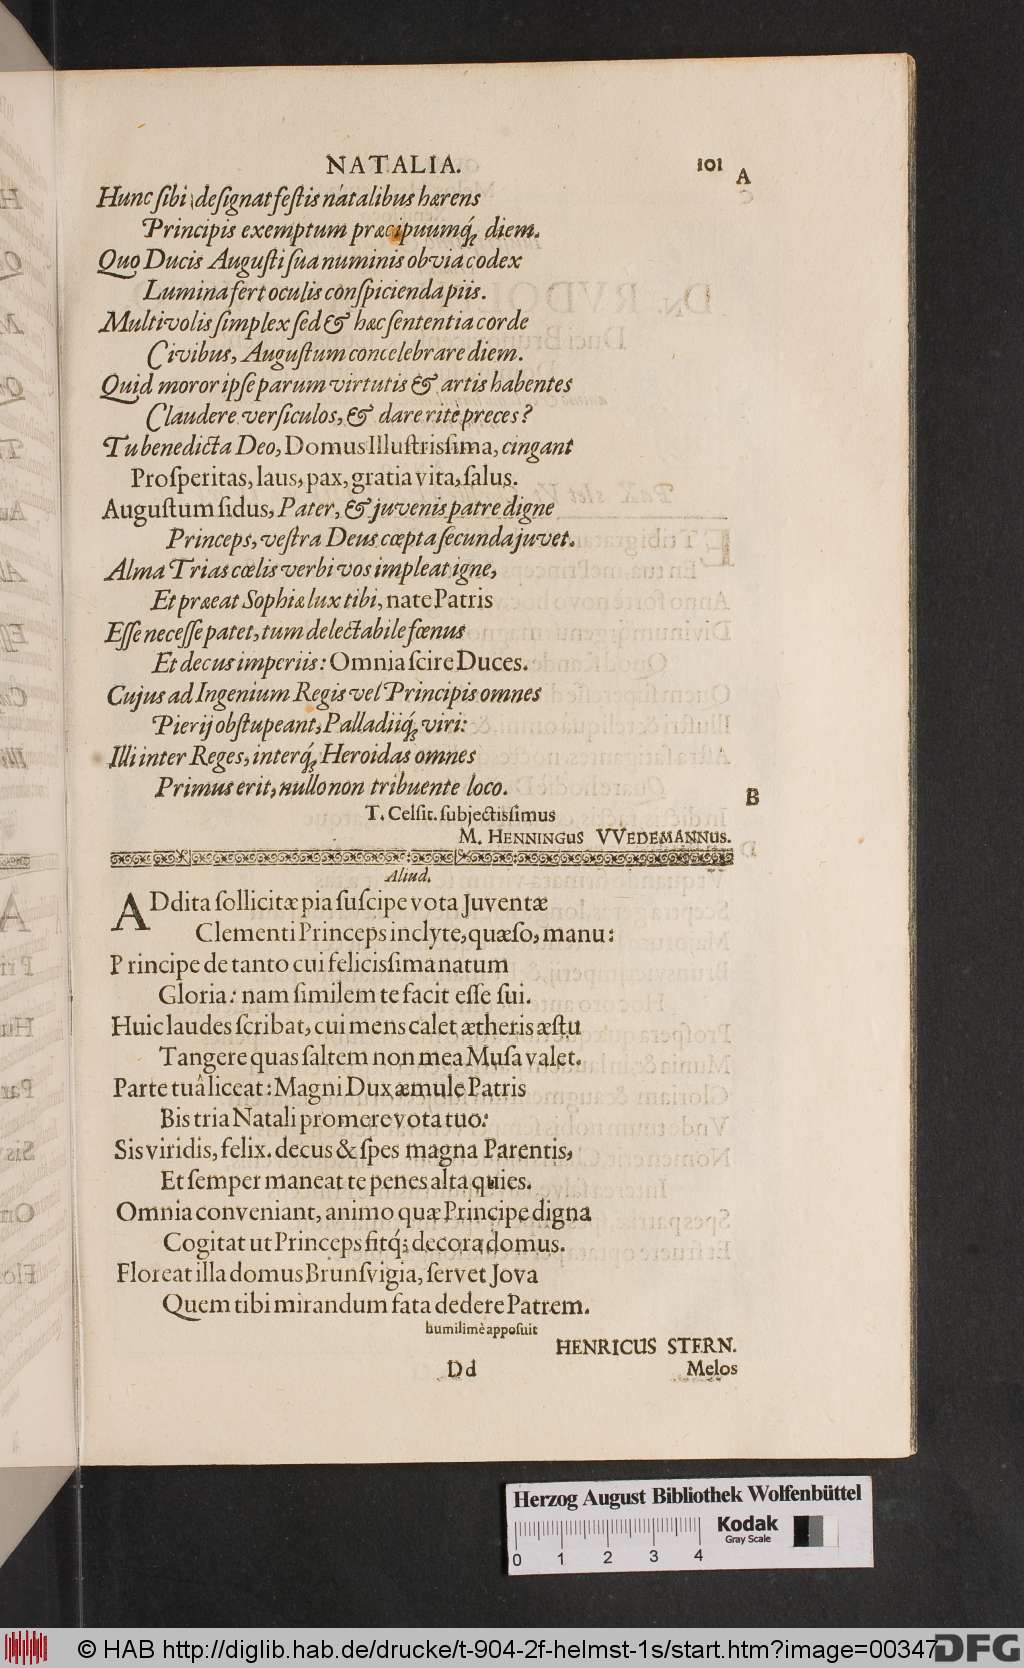 NATALIA. 101
A
Hunc ſibi deſignat feſtis natalibus hærens
Principis exemptum præcipuumq́ꝫ diem.
Quo Ducis Auguſti ſua numinis obvia codex
Lumina fert oculis conſpicienda piis.
Multivolis ſimplex ſed & hæc ſententia corde
Civibus, Auguſtum concelebrare diem.
Quid moror ipſe parum virtutis & artis habentes
Claudere verſiculos, & dare ritè preces?
Tu benedicta Deo, Domus Illuſtrisſima, cingant
Proſperitas, laus, pax, gratia vita, ſalus.
Auguſtum ſidus, Pater, & juvenis patre digne
Princeps, veſtra Deus cœpta ſecunda juvet.
Alma Trias cœlis verbi vos impleat igne,
Et præeat Sophiæ lux tibi, nate Patris
Eſſe neceſſe patet, tum delectabile fœnus
Et decus imperiis: Omnia ſcire Duces.
Cujus ad Ingenium Regis vel Principis omnes
Pierij obſtupeant, Palladiiq́ꝫ viri:
Illi inter Reges, interq́ꝫ Heroidas omnes
Primus erit, nullo non tribuente loco.
B
T. Celſit. ſubjectisſimus
M. HENNINGUS VVEDEMANNUS.
Aliud.
ADdita ſollicitæ pia ſuſcipe vota Juventæ
Clementi Princeps inclyte, quæſo, manu:
Principe de tanto cui felicisſima natum
Gloria: nam ſimilem te facit eſſe ſui.
Huic laudes ſcribat, cui mens calet ætheris æſtu
Tangere quas ſaltem non mea Muſa valet.
Parte tuâ liceat: Magni Dux æmule Patris
Bis tria Natali promere vota tuo:
Sis viridis, felix. decus & ſpes magna Parentis,
Et ſemper maneat te penes alta quies.
Omnia conveniant, animo quæ Principe digna
Cogitat ut Princeps ſitq́ꝫ decora domus.
Floreat illa domus Brunſvigia, ſervet Jova
Quem tibi mirandum fata dedere Patrem.
humilimè appoſuit
HENRICUS STERN.
Dd Melos
Herzog August Bibliothek Wolfenbüttel
0 1 2 3 4
Kodak
Gray Scale
© HAB http://diglib.hab.de/drucke/t-904-2f-helmst-1s/start.htm?image=00347
DFG